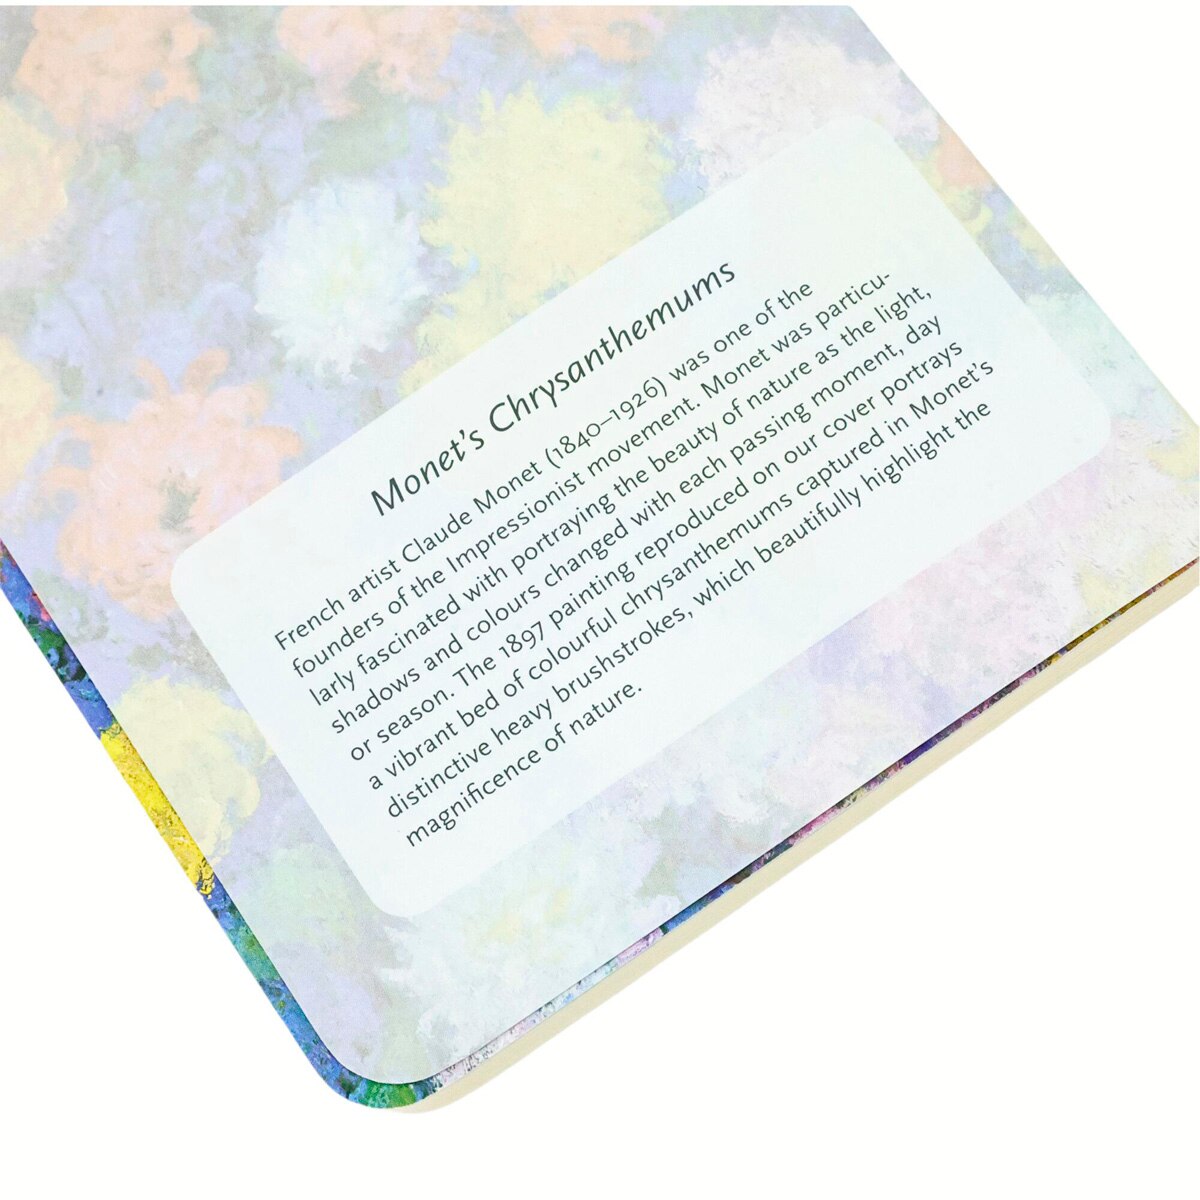 Monet's Chrysanthemums
French artist Claude Monet (1840–1926) was one of the
founders of the Impressionist movement. Monet was particu-
larly fascinated with portraying the beauty of nature as the light,
shadows and colours changed with each passing moment, day
or season. The 1897 painting reproduced on our cover portrays
a vibrant bed of colourful chrysanthemums captured in Monet's
distinctive heavy brushstrokes, which beautifully highlight the
magnificence of nature.